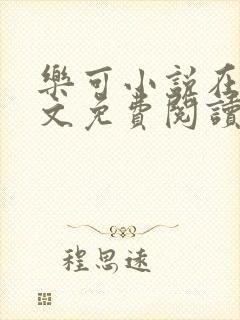 樂可小説在
文免費閱讀
程思遠